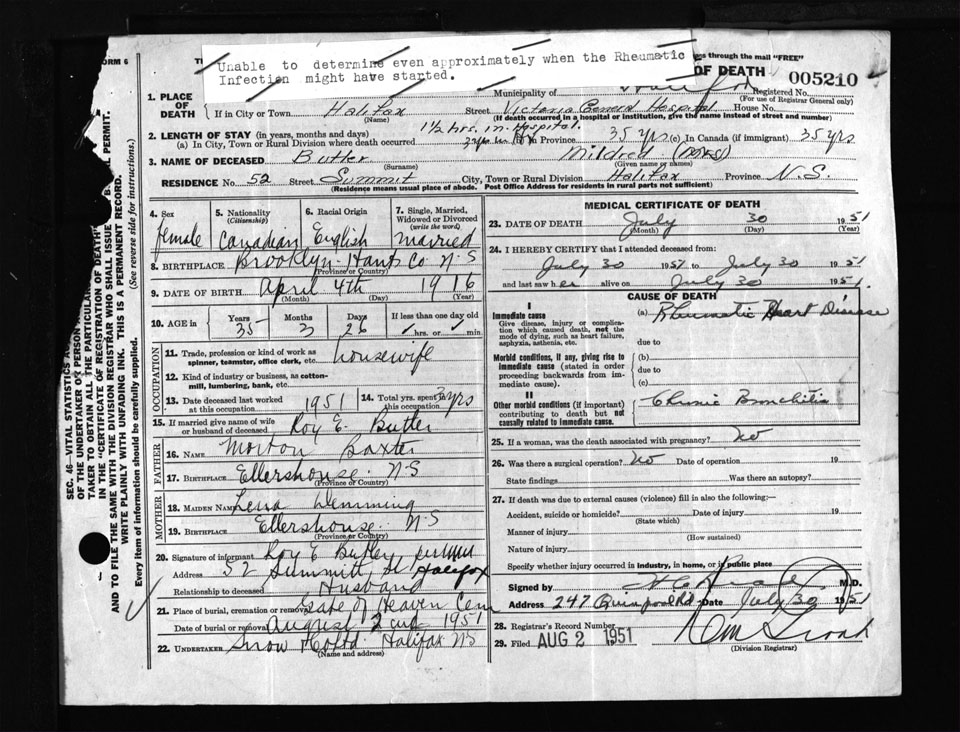 ORM 6
Unable to determine even approximately when the Rheumatic
Infection might have started.
ges through the mail "FREE"
OF DEATH 005210
1. PLACE OF DEATH
Municipality of Halifax Registered No.
(For use of Registrar General only)
If in City or Town Halifax Street Victoria General Hospital House No.
(Name) (If death occurred in a hospital or institution, give the name instead of street and number)
2. LENGTH OF STAY (in years, months and days) 1½ hrs. in Hospital.
(a) In City, Town or Rural Division where death occurred in Province 35 yrs (c) In Canada (if immigrant) 35 yrs
3. NAME OF DECEASED Butler Mildred (MRS)
(Surname) (Given name or names)
RESIDENCE No. 52 Street Summit City, Town or Rural Division Halifax Province N.S.
(Residence means usual place of abode. Post Office Address for residents in rural parts not sufficient)
4. Sex female
5. Nationality (Citizenship) Canadian
6. Racial Origin English
7. Single, Married, Widowed or Divorced (write the word) married
8. BIRTHPLACE Brooklyn - Hants Co N-S
(Province or Country)
9. DATE OF BIRTH April 4th 1916
(Month) (Day) (Year)
10. AGE in Years 35 Months 3 Days 26 If less than one day old hrs. or min
OCCUPATION
11. Trade, profession or kind of work as spinner, teamster, office clerk, etc. housewife
12. Kind of industry or business, as cotton-mill, lumbering, bank, etc.
13. Date deceased last worked at this occupation 1951
14. Total yrs. spent in this occupation yrs
15. If married give name of wife or husband of deceased Roy E. Butler
FATHER
16. NAME Morton Baxter
17. BIRTHPLACE Ellershouse. N-S
(Province or Country)
MOTHER
18. MAIDEN NAME Lena Demming
19. BIRTHPLACE Ellershouse. N-S
(Province or Country)
20. Signature of informant Roy E Butler
Address 52 Summitt St Halifax
Relationship to deceased Husband
21. Place of burial, cremation or removal Gate of Heaven Cem
Date of burial or removal August 2nd 1951
22. UNDERTAKER Snow Halifax NS
(Name and address)
MEDICAL CERTIFICATE OF DEATH
23. DATE OF DEATH July 30 1951
(Month) (Day) (Year)
24. I HEREBY CERTIFY that I attended deceased from:
July 30 1951 to July 30 1951
and last saw her alive on July 30 1951.
CAUSE OF DEATH
I
Immediate cause
Give disease, injury or complication which caused death, not the mode of dying, such as heart failure, asphyxia, asthenia, etc.
(a) Rheumatic Heart Disease
due to
Morbid conditions, if any, giving rise to immediate cause (stated in order proceeding backwards from immediate cause).
(b)
due to
(c)
II
Other morbid conditions (if important) contributing to death but not causally related to immediate cause.
Chronic Bronchitis
25. If a woman, was the death associated with pregnancy? No
26. Was there a surgical operation? No Date of operation 19
State findings Was there an autopsy?
27. If death was due to external causes (violence) fill in also the following:—
Accident, suicide or homicide? Date of injury 19
(State which)
Manner of injury
(How sustained)
Nature of injury
Specify whether injury occurred in industry, in home, or in public place
Signed by M.D.
Address 247 Quinpool Rd. Date July 30 1951
28. Registrar's Record Number
29. Filed AUG 2 1951
(Division Registrar)
SEC. 46—VITAL STATISTICS
OF THE UNDERTAKER OR PERSON
TAKER TO OBTAIN ALL THE PARTICULAR
IN THE "CERTIFICATE OF REGISTRATION OF DEATH"
AND TO FILE THE SAME WITH THE DIVISION REGISTRAR WHO SHALL ISSUE PERMIT.
WRITE PLAINLY WITH UNFADING INK. THIS IS A PERMANENT RECORD.
Every item of information should be carefully supplied. (See reverse side for instructions.)